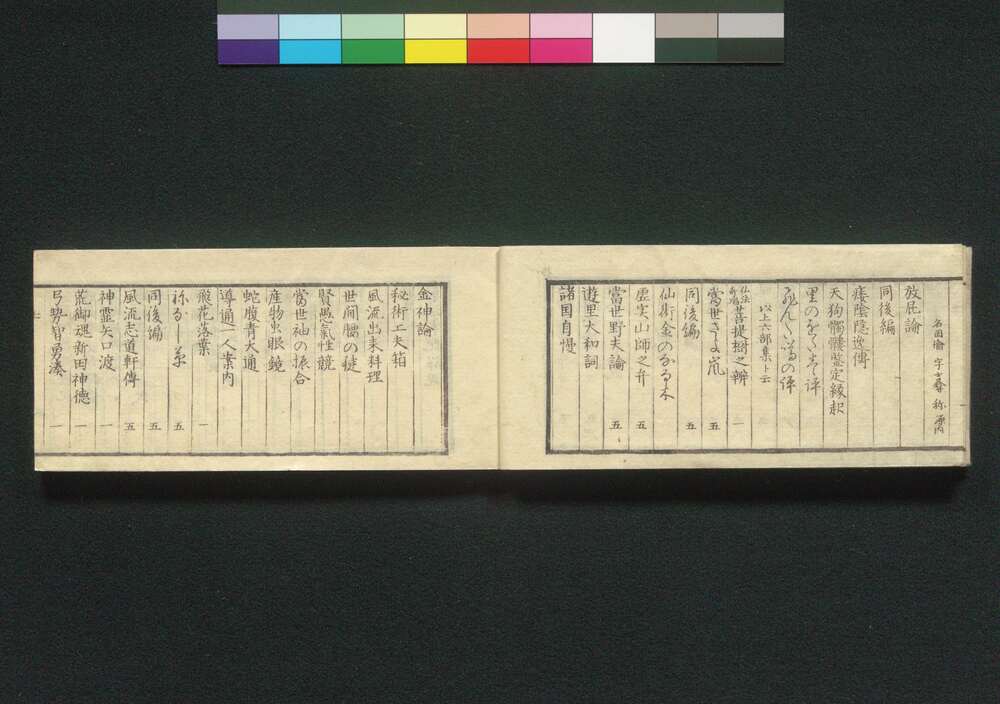 名国倫 字士彝 称源内
放屁論
同後編
痿陰隠逸傳
天狗髑髏鑒定縁起
里のをだまき評
飛んだ噂の評
以上六部集ト云
菩提樹之辨 一
當世 嵐 五
同後編 五
仙術金のなる木
虚実山師之弁 五
當世野夫論 五
遊里大和詞
諸国自慢
金神論
秘術工夫箱
風流出来料理
世間臍の穴
賢愚氣性競
當世袖の振合
産物虫眼鏡
蛇腹青大通
導通一人案内
飛花落葉 一
祢なし草 五
同後編 五
風流志道軒傳 五
神霊矢口渡 一
荒御魂新田神徳 一
弓勢智勇湊 一